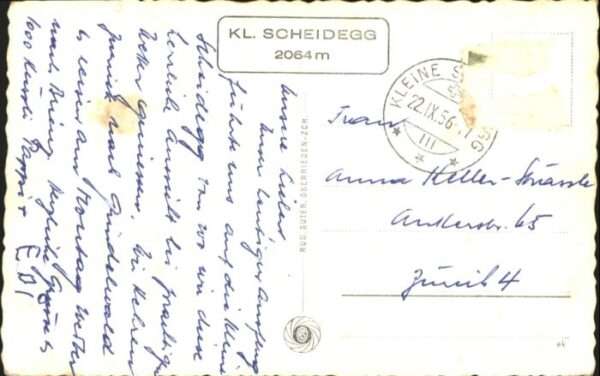 KL. SCHEIDEGG
2064 m
KLEINE S
GG
22.IX.56
III
Unsere Lieben
Unser heutiger Ausflug
führte uns auf die Kleine
Scheidegg von wo wir diese
herrliche Aussicht bei prächtigem
Wetter geniessen.
zurück nach Grindelwald
u. reisen am Montag weiter
nach Herzliche Grüsse u.
1000 Küssli
EDI
RUD. SUTER, OBERRIEDEN-ZCH.
Frau
Anna Keller-
Ankerstr. 65
Zürich 4